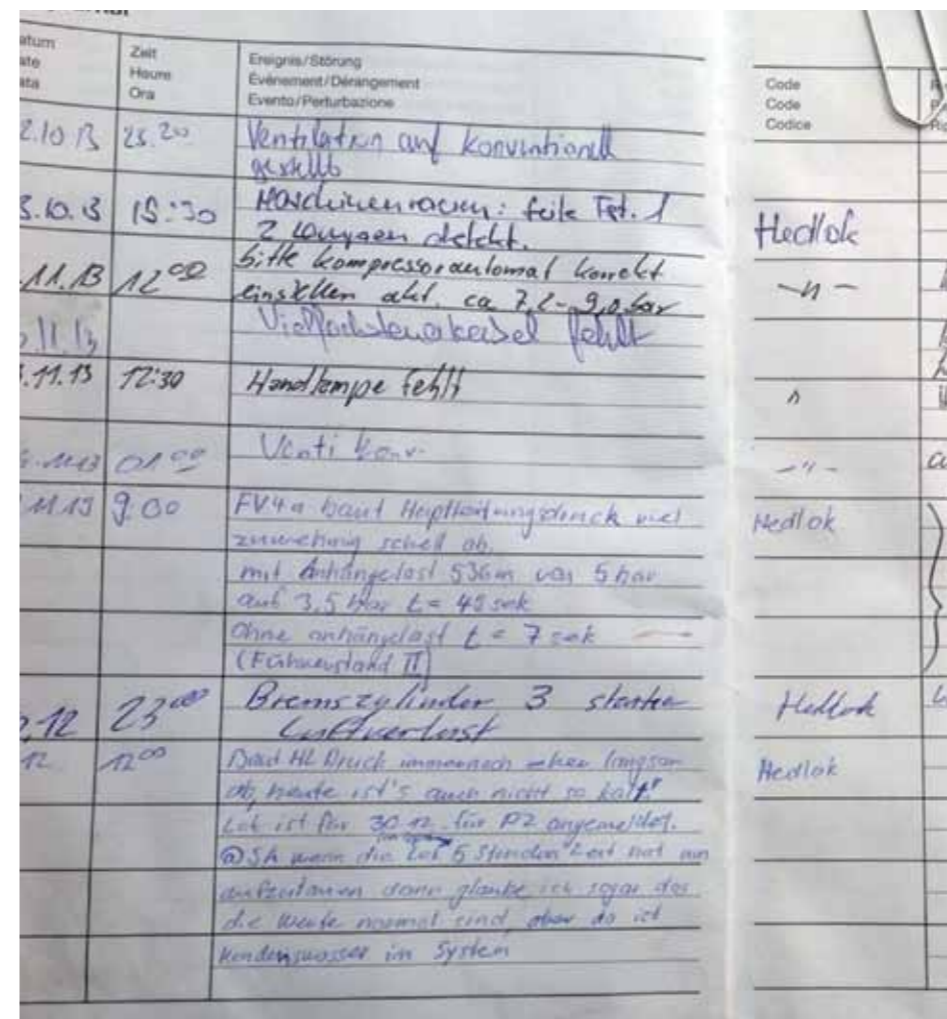 Zeit
Heure
Ora
Ereignis/Störung
Événement/Dérangement
Evento/Perturbazione
Code
Code
Codice
2.10 13 23.20 Ventilation auf konventionell
gestellt
3.10.13 15:30 Maschinenraum:
2 Lampen defekt. Hedlok
.11.13 12 00 bitte Kompressorautomat korrekt
einstellen akt. ca 7,2-9,0 bar -"-
11.13 fehlt
.11.13 12:30 Handlampe fehlt "
.11.13 01 00 Venti konv. -"-
.11.13 9:00 FV4a baut Hauptleitungsdruck viel
schell ab. Hedlok
mit Anhängelast 536m von 5 bar
auf 3,5 bar t = 45 sek
Ohne anhängelast t = 7 sek
(Führerstand II)
.12 23 00 Bremszylinder 3 starker
Luftverlust Hedlok
12 12 00 Baut HL Druck immernoch eher langsam
ab, heute ist's auch nicht so kalt" Hedlok
Lok ist für 30.12. für P2 angemeldet.
@Sh wenn die Lok 5 Stunden Zeit hat um
aufzutauen dann glaube ich sogar das
die Werte normal sind, aber da ist
Kondenswasser im System